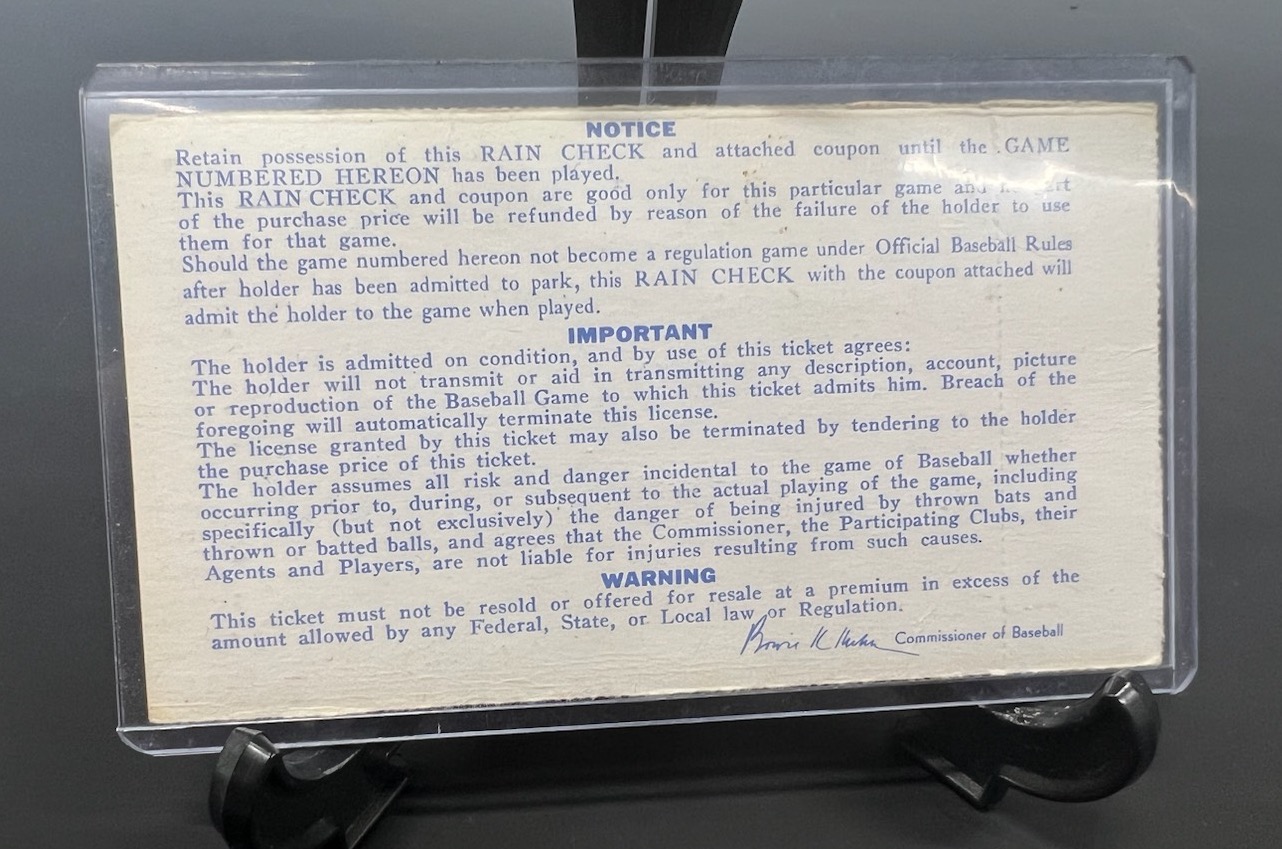 NOTICE
Retain possession of this RAIN CHECK and attached coupon until the GAME
NUMBERED HEREON has been played.
This RAIN CHECK and coupon are good only for this particular game and
of the purchase price will be refunded by reason of the failure of the holder to use
them for that game.
Should the game numbered hereon not become a regulation game under Official Baseball Rules
after holder has been admitted to park, this RAIN CHECK with the coupon attached will
admit the holder to the game when played.
IMPORTANT
The holder is admitted on condition, and by use of this ticket agrees:
The holder will not transmit or aid in transmitting any description, account, picture
or reproduction of the Baseball Game to which this ticket admits him. Breach of the
foregoing will automatically terminate this license.
The license granted by this ticket may also be terminated by tendering to the holder
the purchase price of this ticket.
The holder assumes all risk and danger incidental to the game of Baseball whether
occurring prior to, during, or subsequent to the actual playing of the game, including
specifically (but not exclusively) the danger of being injured by thrown bats and
thrown or batted balls, and agrees that the Commissioner, the Participating Clubs, their
Agents and Players, are not liable for injuries resulting from such causes.
WARNING
This ticket must not be resold or offered for resale at a premium in excess of the
amount allowed by any Federal, State, or Local law or Regulation.
Bowie K Kuhn Commissioner of Baseball